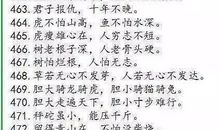 463. 君子报仇，十年不晚。
464. 虎不怕山高，鱼不怕水深。
465. 虎瘦雄心在，人穷志不短。
466. 树老根子深，人老骨头硬。
467. 树怕烂根，人怕无志。
468. 草若无心不发芽，人若无心不发达。
469. 胆大骑龙骑虎，胆小骑猫骑兔。
470. 胆大走遍天下，胆小寸步难行。
471. 秤砣虽小，能压千斤。